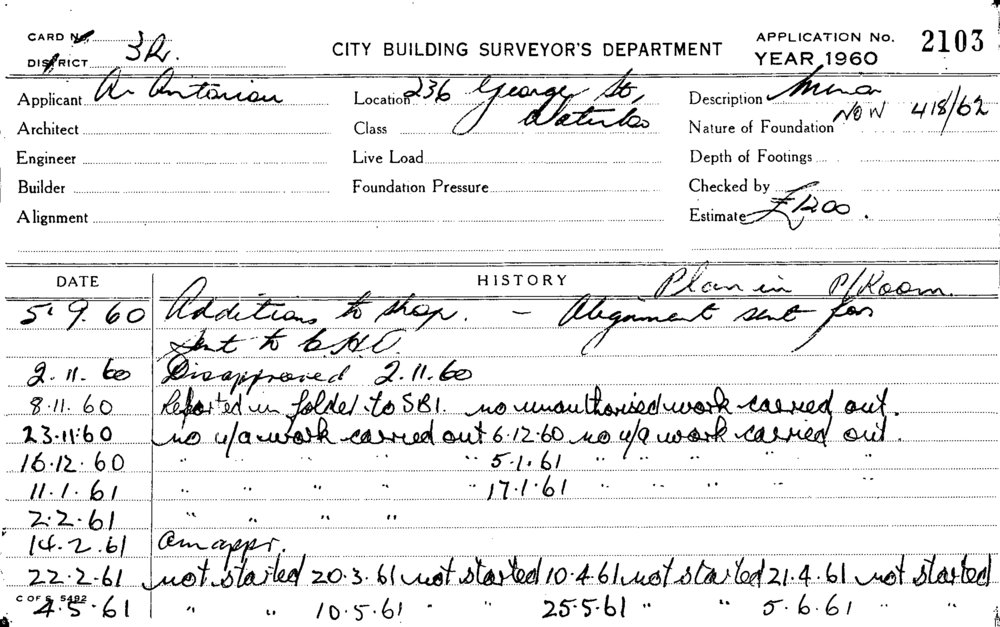 CARD No. 3R. CITY BUILDING SURVEYOR'S DEPARTMENT APPLICATION No. 2103
DISTRICT YEAR 1960
Applicant Location 236 George St, Waterloo Description Minor
Architect Class Nature of Foundation NOW 418/62
Engineer Live Load Depth of Footings
Builder Foundation Pressure Checked by
Alignment Estimate £1200.
DATE HISTORY Plan in P/Room.
5.9.60 Additions to shop. - Alignment sent for
sent to
2.11.60 Disapproved 2.11.60
8.11.60 Reported in folder to SBI. no unauthorised work carried out.
23.11.60 no u/a work carried out 6.12.60 no u/a work carried out.
16.12.60 " " " " 5.1.61 " " " " "
11.1.61 " " " " 17.1.61 " " " " "
2.2.61 " " " "
14.2.61 am appr.
22.2.61 not started 20.3.61 not started 10.4.61 not started 21.4.61 not started
C OF S 5492
4.5.61 " " 10.5.61 " " 25.5.61 " " 5.6.61 " "